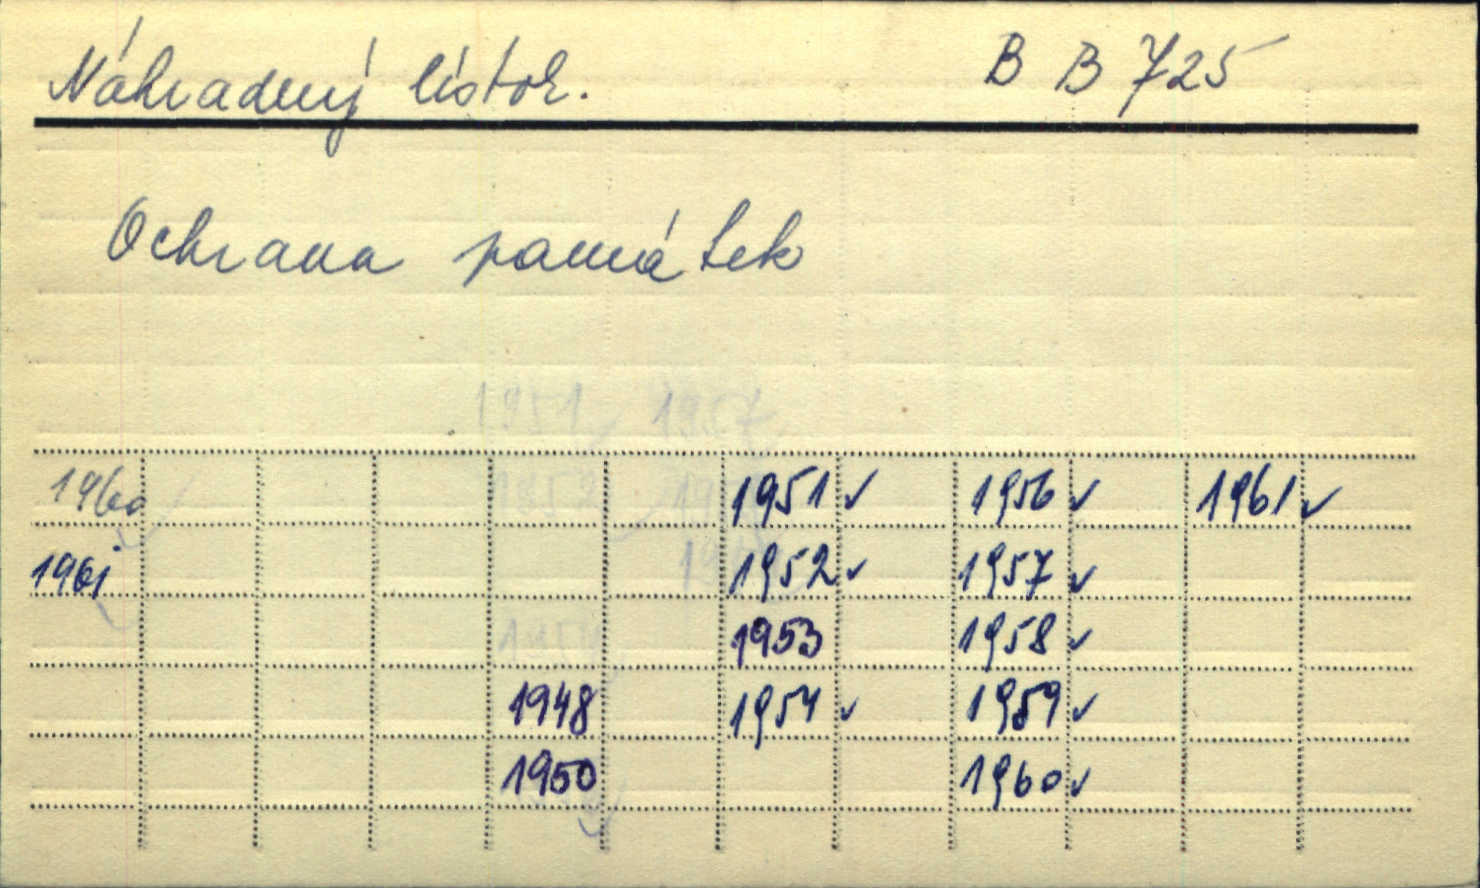 Náhradný lístok. B B 725
Ochrana památek
1951 ✓ 1957
1960 1952 1951 ✓ 1956 ✓ 1961 ✓
1961 1952 ✓ 1957 ✓
1953 1958 ✓
1948 1954 ✓ 1959 ✓
1950 1960 ✓